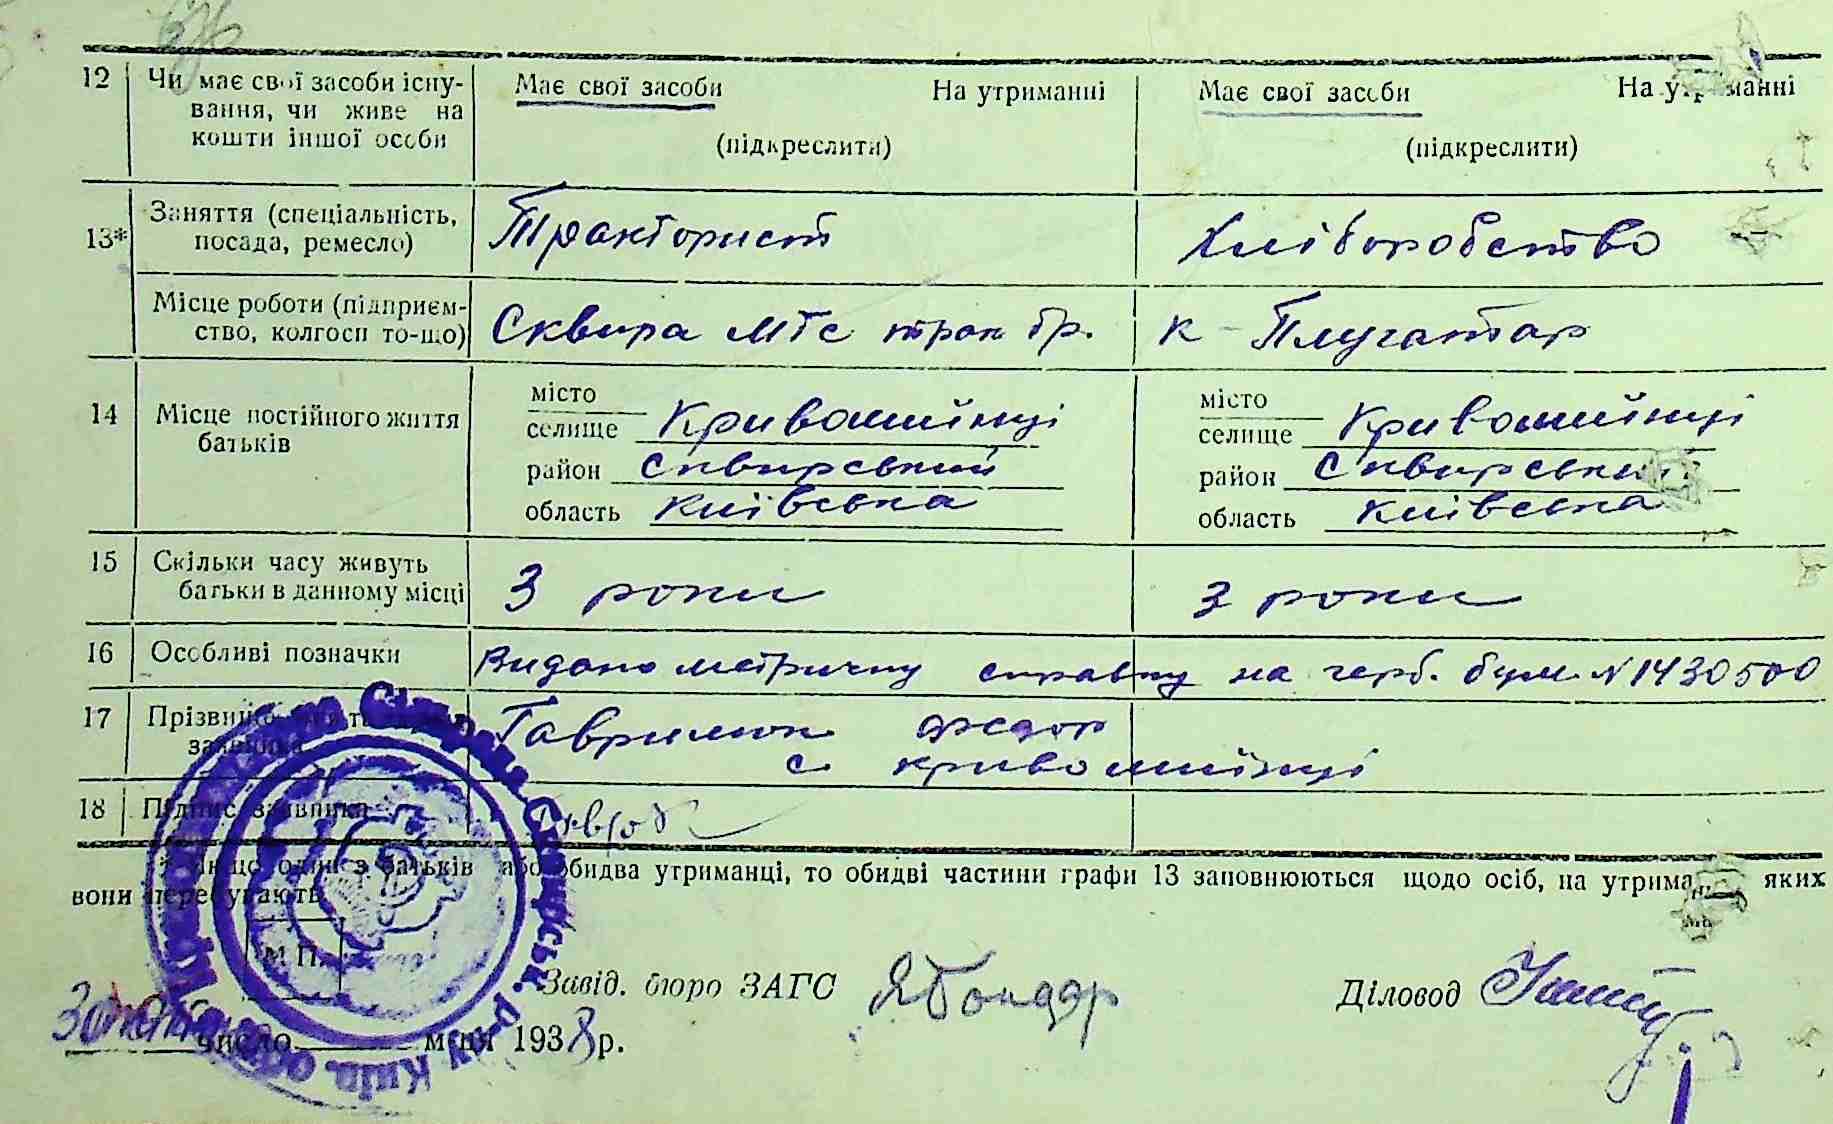 12 Чи має свої засоби існу- Має свої засоби На утриманні Має свої засоби На утриманні
вання, чи живе на
кошти іншої особи (підкреслити) (підкреслити)
13* Заняття (спеціальність, Тракторист Хліборобство
посада, ремесло)
Місце роботи (підприєм- Сквира МТС трак бр. к - Плугатар
ство, колгосп то-що)
14 Місце постійного життя місто місто
батьків селище Кривошиїнці селище Кривошиїнці
район Сквирський район Сквирський
область Київська область Київська
15 Скільки часу живуть 3 роки 3 роки
батьки в данному місці
16 Особливі позначки Видано метричну справку на герб. бум. N 1430500
17 Прізвище заявника Гаврилюк Федор
с Кривошиїнці
18 Підпис заявника
* Якщо один з батьків або обидва утриманці, то обидві частини графи 13 заповнюються щодо осіб, на яких
вони перебувають
М П.
Завід. бюро ЗАГС ЯБондар Діловод
30 число м-ця 1938 р.